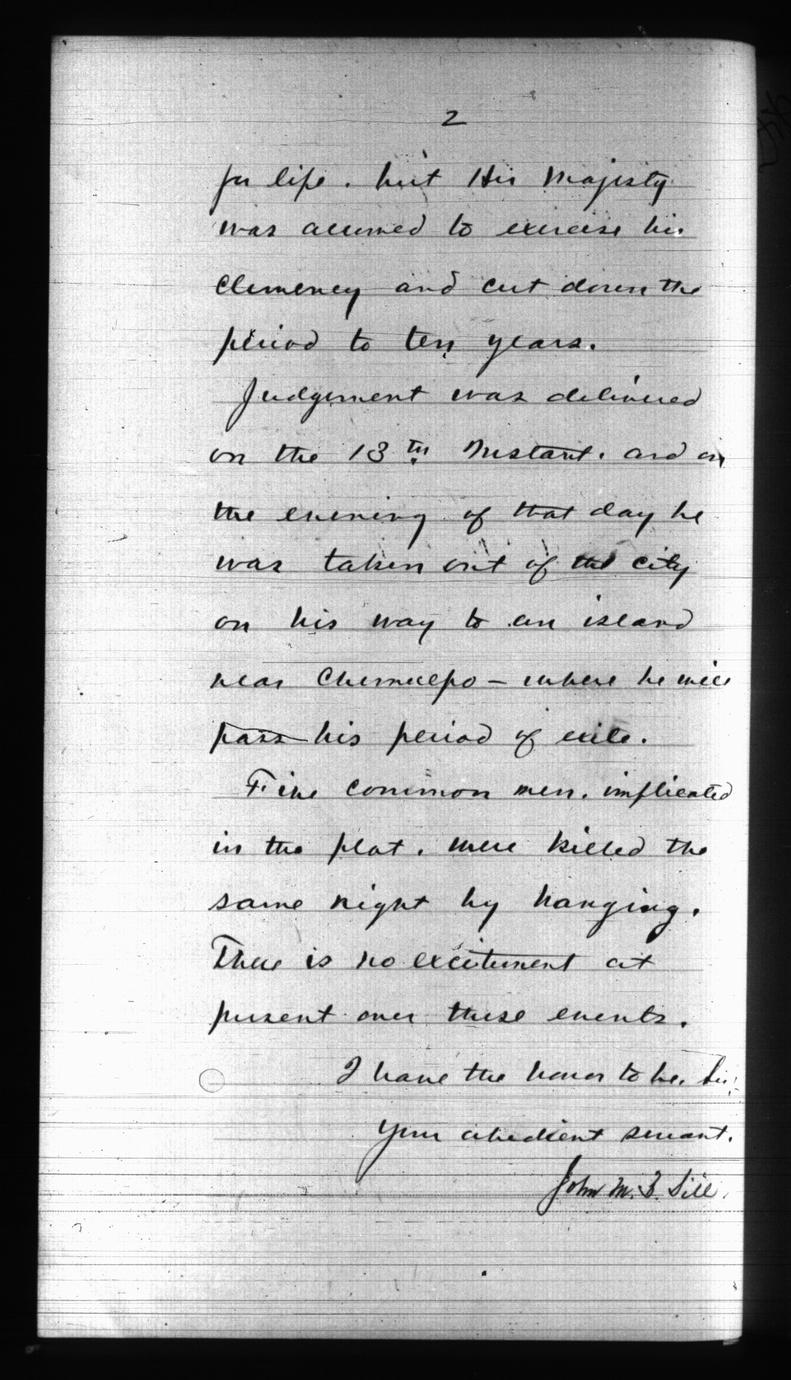 2
for life. but His Majesty
was assumed to exercise his
Clemency and cut down the
period to ten years.
Judgement was delivered
on the 13th Instant. and on
the evening of that day he
was taken out of the city
on his way to an island
near Chemulpo – where he will
pass his period of exile.
Five common men. implicated
in the plot. were killed the
same night by hanging.
There is no excitement at
present over these events.
I have the honor to be. Sir:
Your obedient servant.
John M. B. Sill.